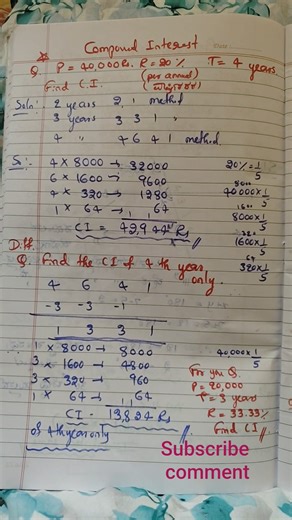 Compound Interest
Q. P = 40,000Rs. R = 20% T = 4 years.
(per annual
Find C.I.
Soln: 2 years 2, 1 method
3 years 3 3 1 "
4 " 4 6 4 1 method
So: 4 x 8000 → 32000 20% = 1/5
6 x 1600 → 9600 8000
4 x 320 → 1280 40000 x 1/5
1 x 64 → 64 1600
8000 x 1/5
CI = 42,944 Rs 320
1600 x 1/5
Diff. 64
Q. Find the CI of 4th year only. 320 x 1/5
4 6 4 1
-3 -3 -1
1 3 3 1
1 x 8000 → 8000 40,000 x 1/5
3 x 1600 → 4800 For you Q.
3 x 320 → 960 P = 20,000
1 x 64 → 64 T = 3 years
CI - 13,824 Rs R = 33.33%
of 4th year only Find CI
Subscribe
comment